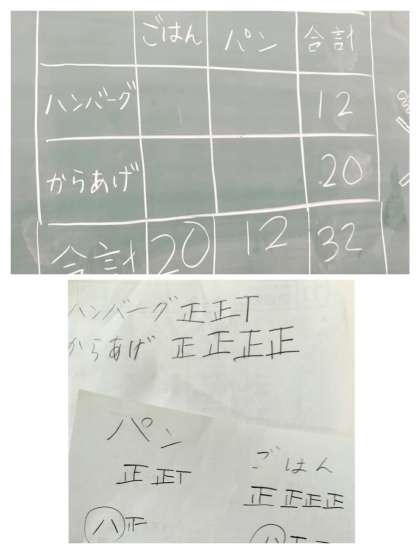 ごはん パン 合計
ハンバーグ 12
からあげ 20
合計 20 12 32
ハンバーグ 正正T
からあげ 正正正正
パン
正正T
ごはん
正正正正
ハ
ハ